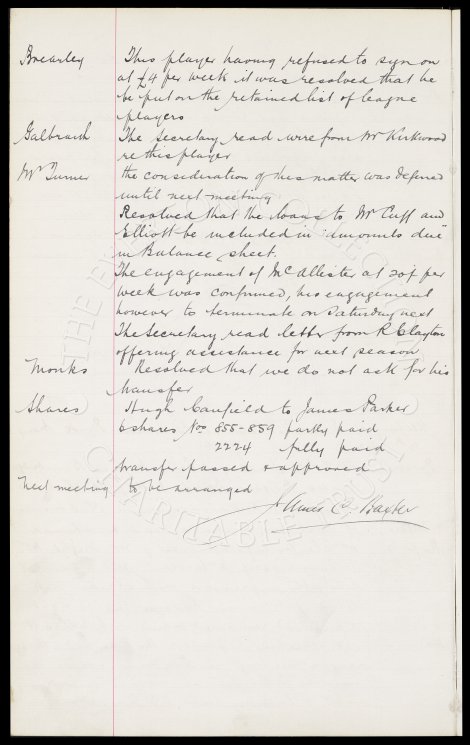 Brearley This player having refused to sign on
at £4 per week it was resolved that he
be put on the retained list of league
players
Galbraith The Secretary read wire from Mr Kirkwood
re this player
Mr Turner the consideration of this matter was deferred
until next meeting
Resolved that the loans to Mr Cuff and
Elliott be included in "amounts due"
in Balance sheet.
The engagement of McAllister at 20/- per
week was confirmed, his engagement
however to terminate on Saturday next
The Secretary read letter from R Clayton
offering assistance for next season
Monks Resolved that we do not ask for his
transfer
Shares Hugh Caufield to James Parker
6 shares Nos 855-859 partly paid
2224 fully paid
transfer passed & approved
Next meeting to be arranged
James C. Baxter
THE EVERTON COLLECTION
CHARITABLE TRUST